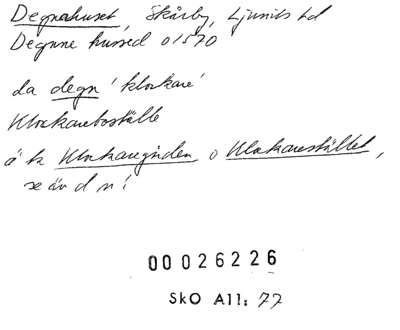 Degnahuset, Skårby, Ljunits hd
Degnne hussed o1570
da degn 'klockare'
Klockareboställe
ä k Klockaregården o Klockarestället,
se äv d n!
00026226
SkO All: 77